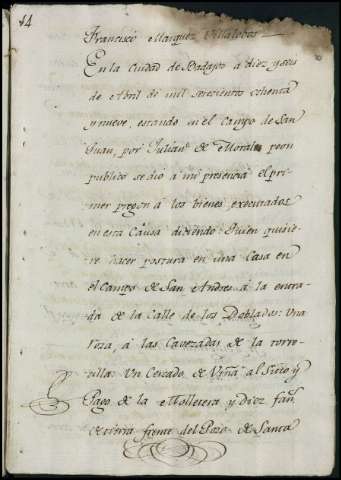 14
Francisco Marquez Villalobos
En la Ciudad de Badajoz a diez y seis
de Abril de mil setezientos ochenta
y nueve, estando en el Campo de San
Juan, por Julian de Moral peon
publico se dio a mi presencia el pri-
mer pregon â los bienes executados
en esta Causa diciendo: Quien quisie-
re hacer postura en una Casa en
el Campo de San Andres á la entra-
da de la Calle de los Doblados: Una
roza, á las Cavezadas de la torre-
cilla: Un Cercado de Viña al Sitio y
Pago de la Molletera y Diez fan.s
de tierra frente del Pozo de Santa